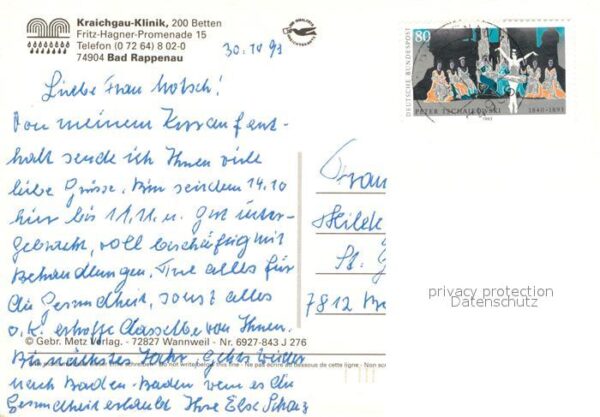 Kraichgau-Klinik, 200 Betten
Fritz-Hagner-Promenade 15
Telefon (0 72 64) 8 02-0
74904 Bad Rappenau
30.10.93
80
DEUTSCHE BUNDESPOST
PETER TSCHAIKOWSKY 1840-1893
1993
Liebe Frau Motsch!
Von meinem Kuraufent-
halt sende ich Ihnen viele
liebe Grüsse. Bin seit dem 14.10
hier bis 11.11. u. gut unter-
gebracht, voll beschäftig mit
Behandlungen. Tue alles für
die Gesundheit, sonst alles
o.k. erhoffe dasselbe von Ihnen.
© Gebr. Metz Verlag. - 72827 Wannweil - Nr. 6927-843 J 276
Bis nächstes Jahr. Gehts wieder
nach Baden-Baden wenn es die
Gesundheit erlaubt Ihre Else
Frau
St.
7812
privacy protection
Datenschutz